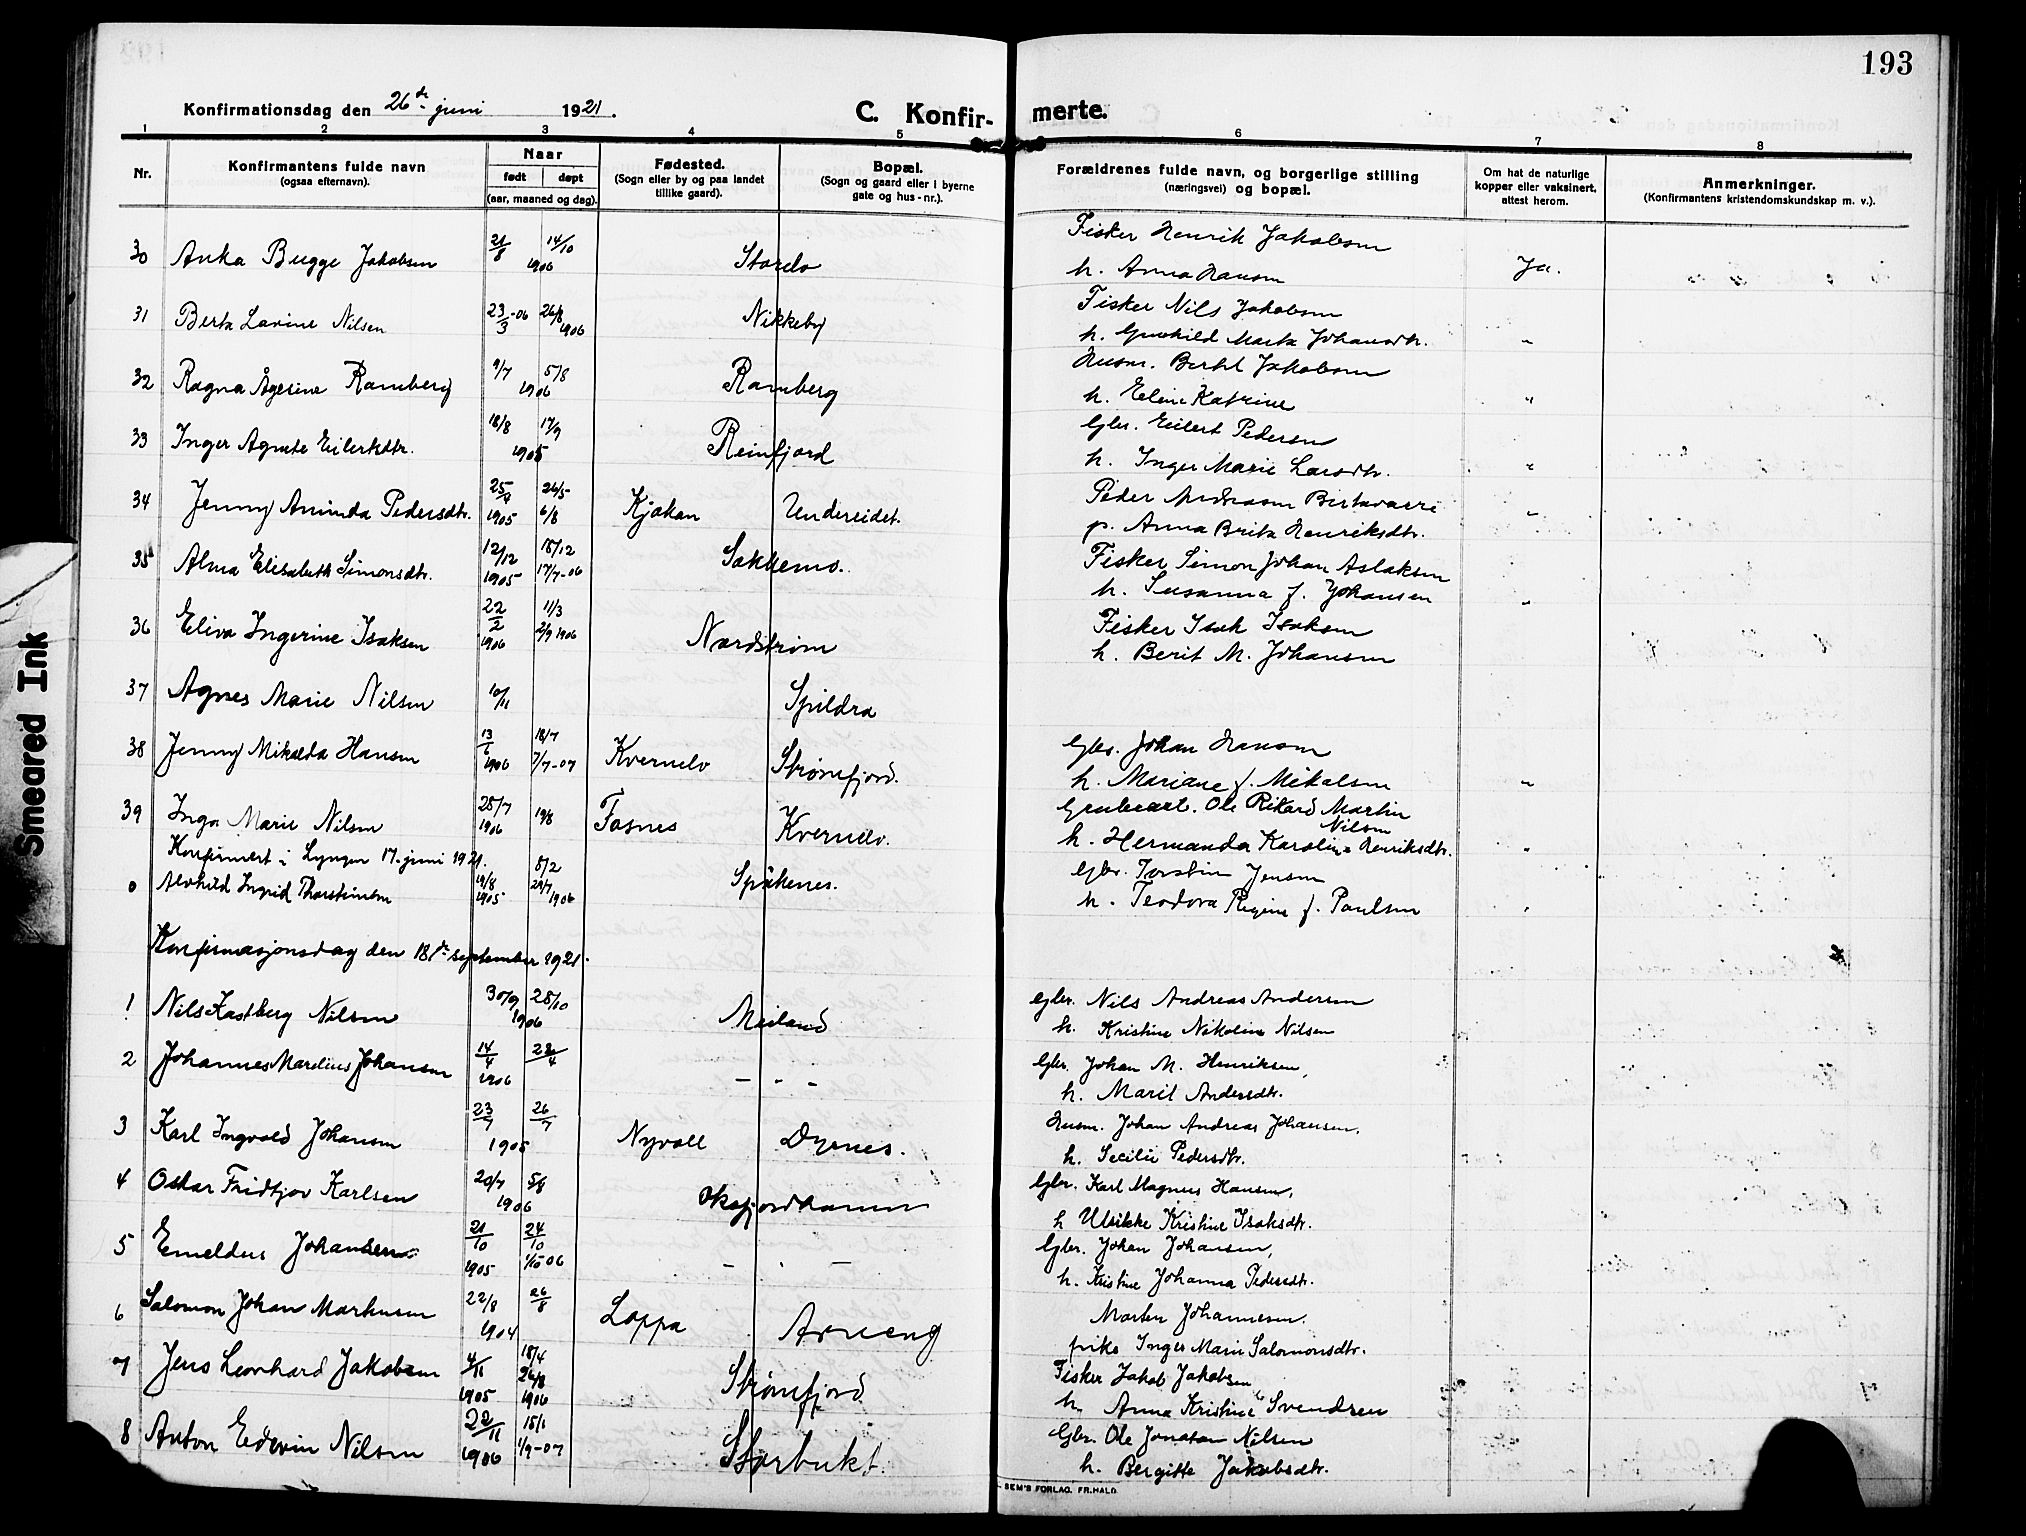 193
Konfirmationsdag den 26de juni 1921.
C. Konfir-merte.
1 2 3 4 5 6 7 8
Nr.
Konfirmantens fulde navn (ogsaa efternavn).
Naar født døpt (aar, maaned og dag).
Fødested. (Sogn eller by og paa landet tillike gaard).
Bopæl. (Sogn og gaard eller i byerne gate og hus-nr.).
Forældrenes fulde navn, og borgerlige stilling (næringsvei) og bopæl.
Om hat de naturlige kopper eller vaksinert, attest herom.
Anmerkninger. (Konfirmantens kristendomskundskap m. v.).
30 Anka Bugge Jakobsen 21/8 14/10 1906 Storelv
Fisker Henrik Jakobsen
h. Anna Hansen Ja.
31 Berta Lavine Nilsen 23/3-06 26/8 1906 Nikkeby
Fisker Nils Jakobsen
h. Gunhild Marta Johansdtr. "
32 Ragna Ågesine Ramberg 9/7 5/8 1906 Ramberg
Husm. Bertel Jakobsen
h. Eline Katrine "
33 Inger Agnete Eilertsdtr. 18/8 17/9 1905 Reinfjord
Gbr. Eilert Pedersen
h. Inger Marie Larsdtr. "
34 Jenny Aminda Pedersdtr. 1905 6/8 Kjækan Undereidet.
Peder Andreasen Birtavarre
p. Anna Brita Henriksdtr. "
35 Alma Elisabeth Simonsdtr. 12/12 1905 18/12 17/7-06 Sakkemo.
Fisker Simon Johan Aslaksen
h. Susanna f. Johansen "
36 Eliva Ingerine Isaksen 22/2 1906 11/3 2/9 1906 Nordstrøm
Fisker Isak Isaksen
h. Berit M. Johansen
37 Agnes Marie Nilsen 10/11 Spildra
38 Jenny Mikalda Hansen 13/6 1906 18/7 7/7-07 Kvernelv Strømfjord.
Gbr. Johan Hansen
h. Mariane f. Mikalsen "
39 Inga Marie Nilsen 28/7 1906 19/8 Fosnes Kvernelv.
Grubearb. Ole Rikard Martin Nilsen
h. Hermanda Karoline Henriksdtr. "
Konfirmert i Lyngen 17. juni 1921.
0 Alvhild Ingrid Thorsteinsen 19/8 1905 8/2 29/7 1906 Spåkenes.
Gbr. Torstein Jensen
h. Teodora Regine f. Paulsen "
Konfirmasjonsdag den 18de september 1921.
1 Nils Kastberg Nilsen 30/9 28/10 1906 Meiland
Gbr. Nils Andreas Andersen
h. Kristine Nikoline Nilsen
2 Johannes Marelius Johansen 14/4 1906 22/4 - " -
Gbr. Johan M. Henriksen,
h. Marit Andersdtr.
3 Karl Ingvald Johansen 23/7 26/7 1905 Nyvoll Dyrnes.
Husm. Johan Andreas Johansen,
h. Secilie Pedersdtr.
4 Oskar Fridtjov Karlsen 20/7 5/8 1906 Oksfjordhamn
Gbr. Karl Magnus Hansen,
h Ulrikke Kristine Isaksdtr.
5 Emeldus Johansen 21/10 1905 24/10 1/10-06 - " -
Gbr. Johan Johansen,
h. Kristine Johanna Pedersdtr.
6 Salomon Johan Markusen 22/8 1904 26/8 Loppa
Morten Johannesen.
pike Inger Marie Salomonsdtr.
7 Jens Leonhard Jakobsen 4/11 1905 18/4 26/8 1906 Strømfjord.
Fisker Jakob Jakobsen
h. Anna Kristine Svendsen
8 Anton Edevin Nilsen 22/11 1906 15/1 1/9-07 Storbukt.
Gbr. Ole Jonatan Nilsen
h. Bergitte Jakobsdtr.
SEM'S FORLAG, FR.HALD.
Smeared Ink